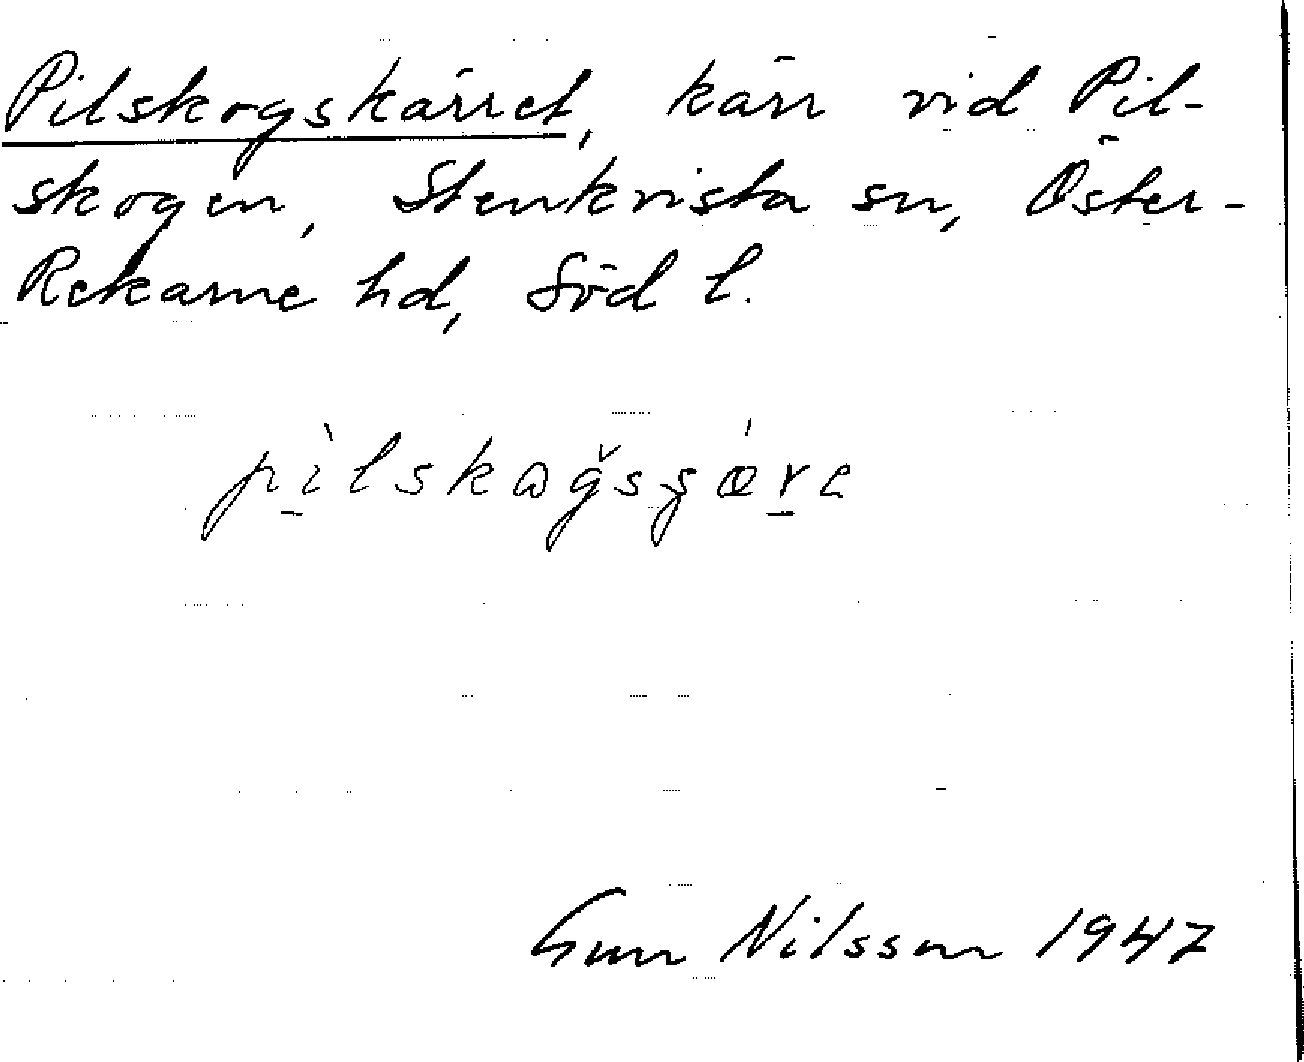 Pilskogskärret, kärr vid Pil-
skogen, Stenkvista sn, Öster-
Rekarne hd, Söd l.
Gun Nilsson 1947